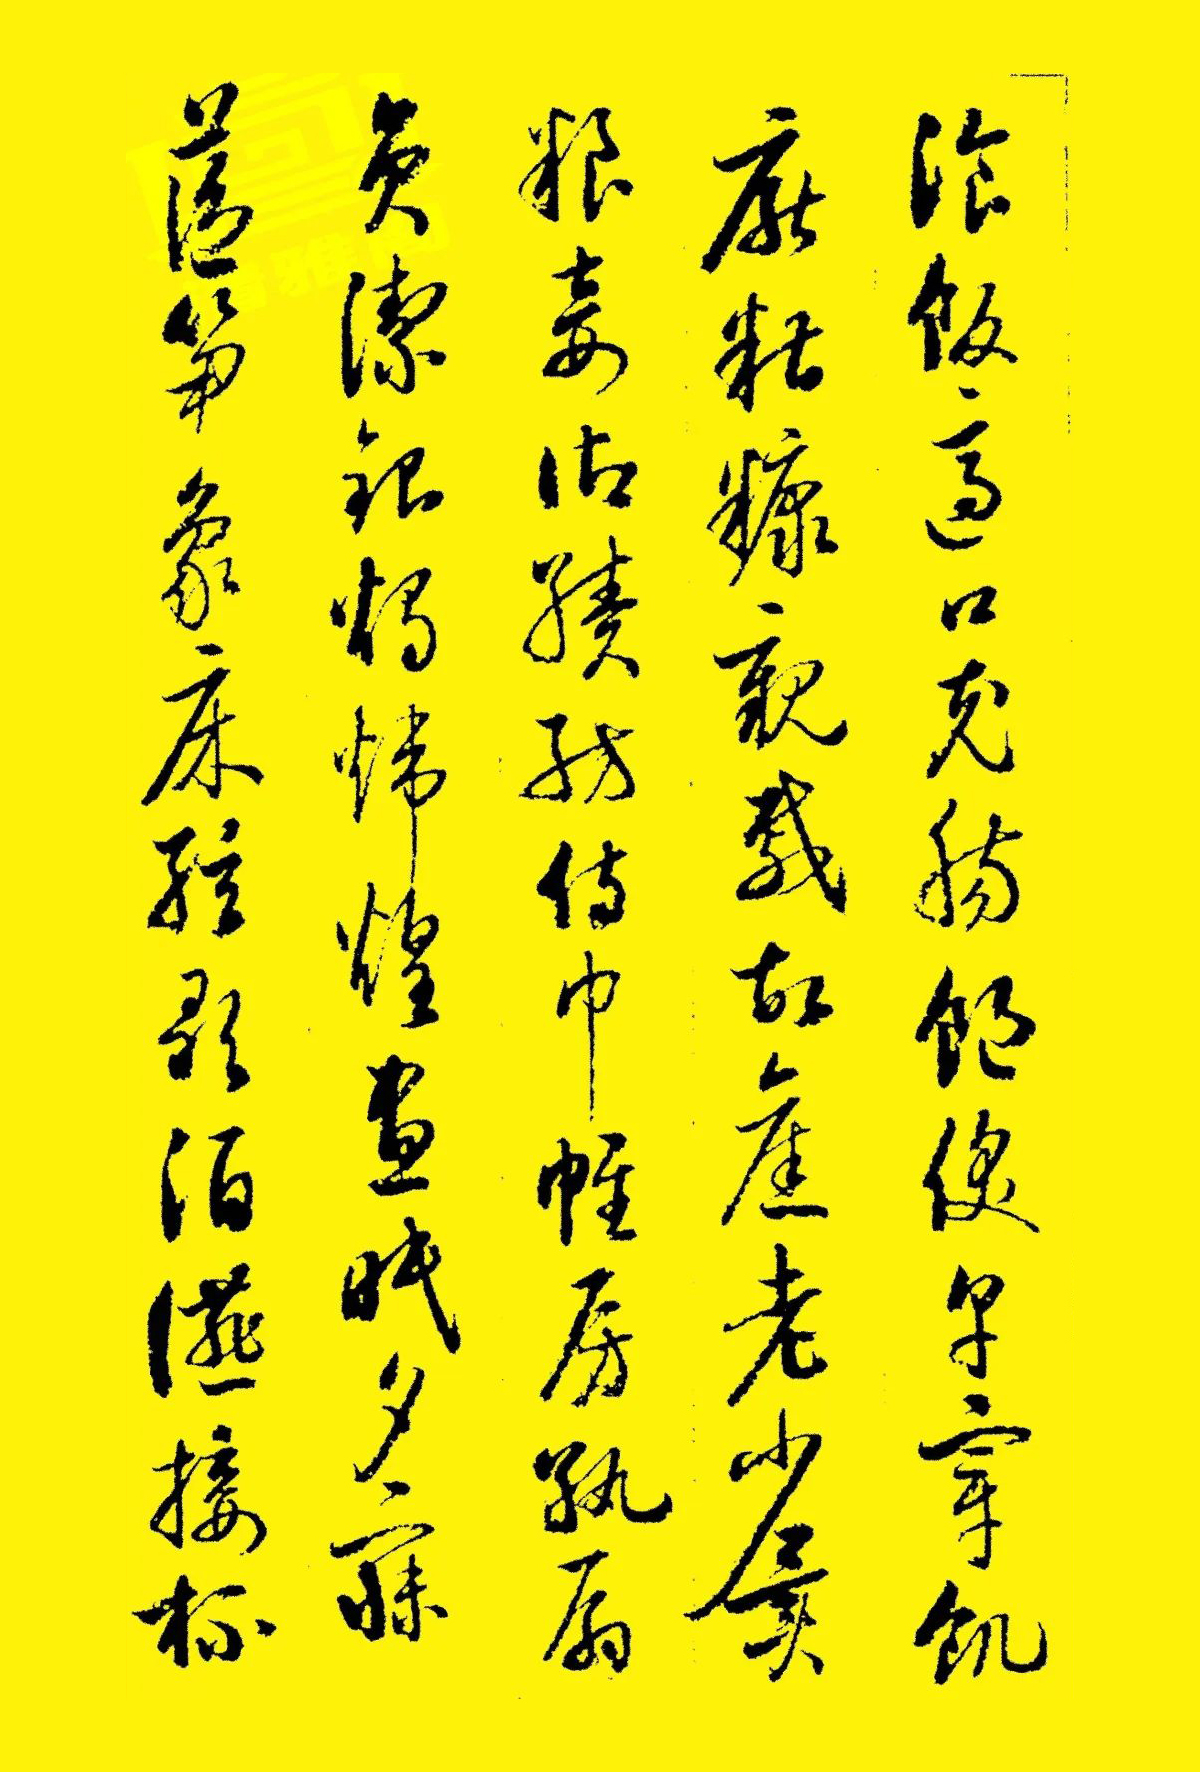 湌飯適口充腸飽飫烹宰飢
厭糟糠親戚故舊老少異
糧妾御績紡侍巾帷房紈扇
員潔銀燭煒煌晝眠夕寐
藍筍象床絃歌酒讌接杯